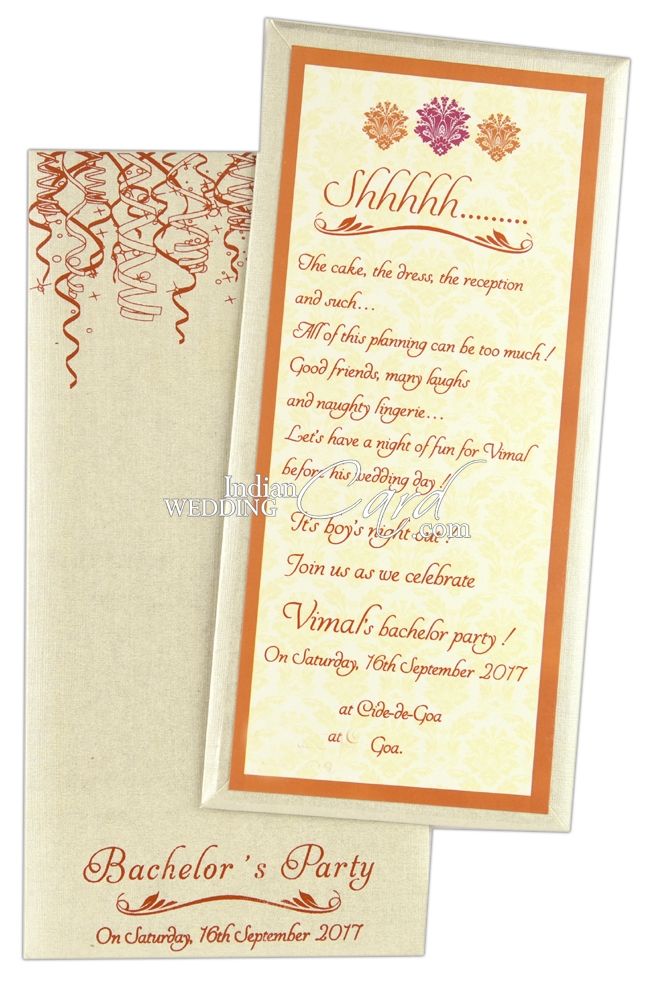 Shhhhh.........
The cake, the dress, the reception
and such...
All of this planning can be too much !
Good friends, many laughs
and naughty lingerie...
Let's have a night of fun for Vimal
before his wedding day !!
Indian
WEDDING Card.com
It's boy's night out !
Join us as we celebrate
Vimal's bachelor party !
On Saturday, 16th September 2017
at Cide-de-Goa
at Goa.
Bachelor's Party
On Saturday, 16th September 2017